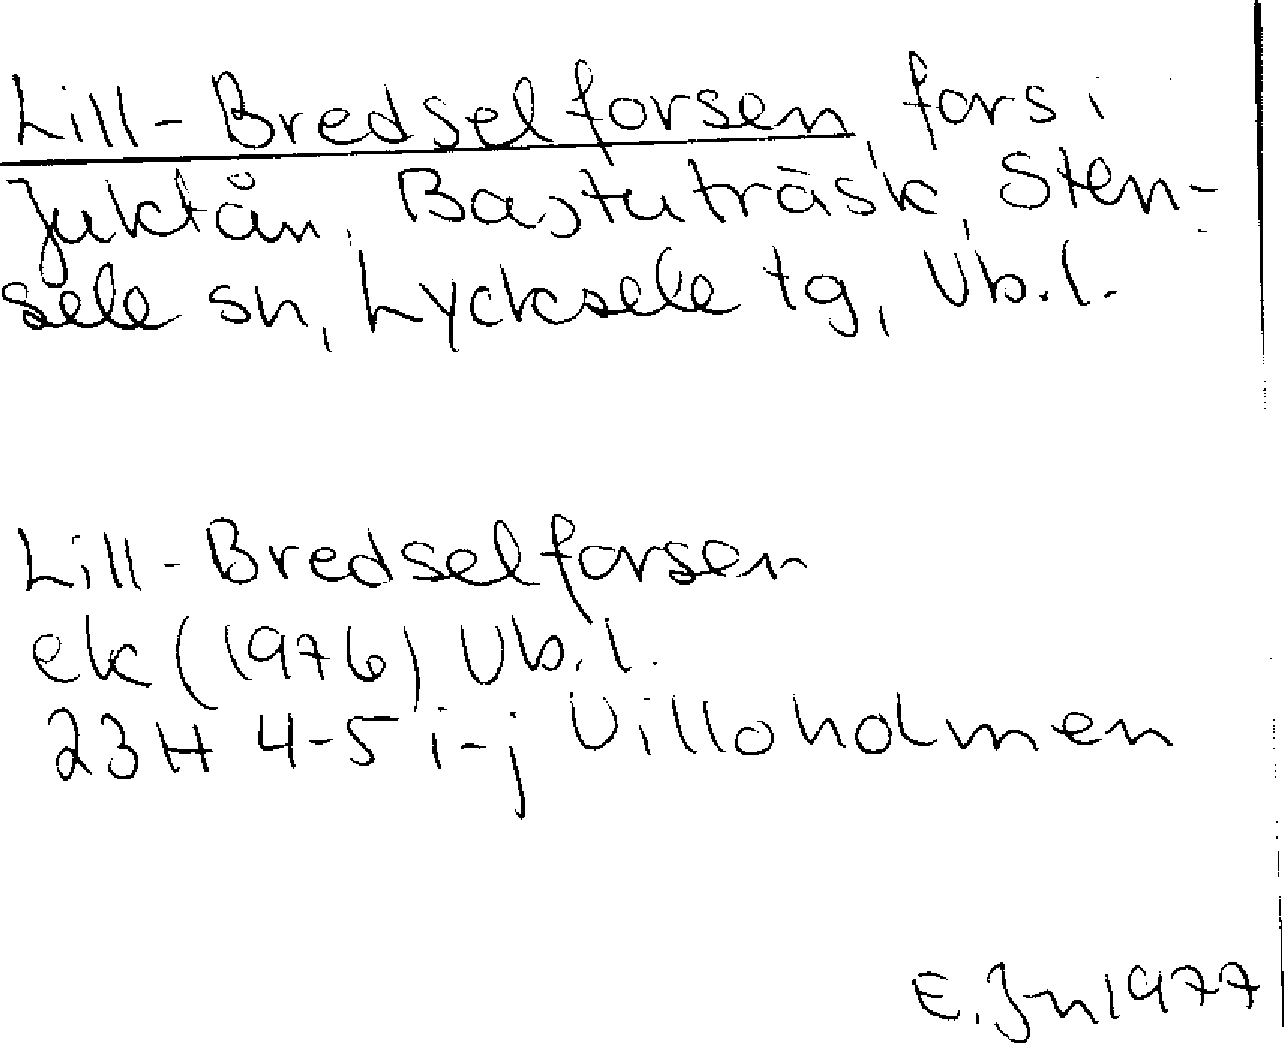 Lill-Bredselforsen, fors i
Juktån, Bastuträsk, Sten-
sele sn, Lycksele tg, Vb.l.
Lill-Bredselforsen
ek (1976) Vb.l.
23H 4-5 i-j Villoholmen
E. Jn 1977